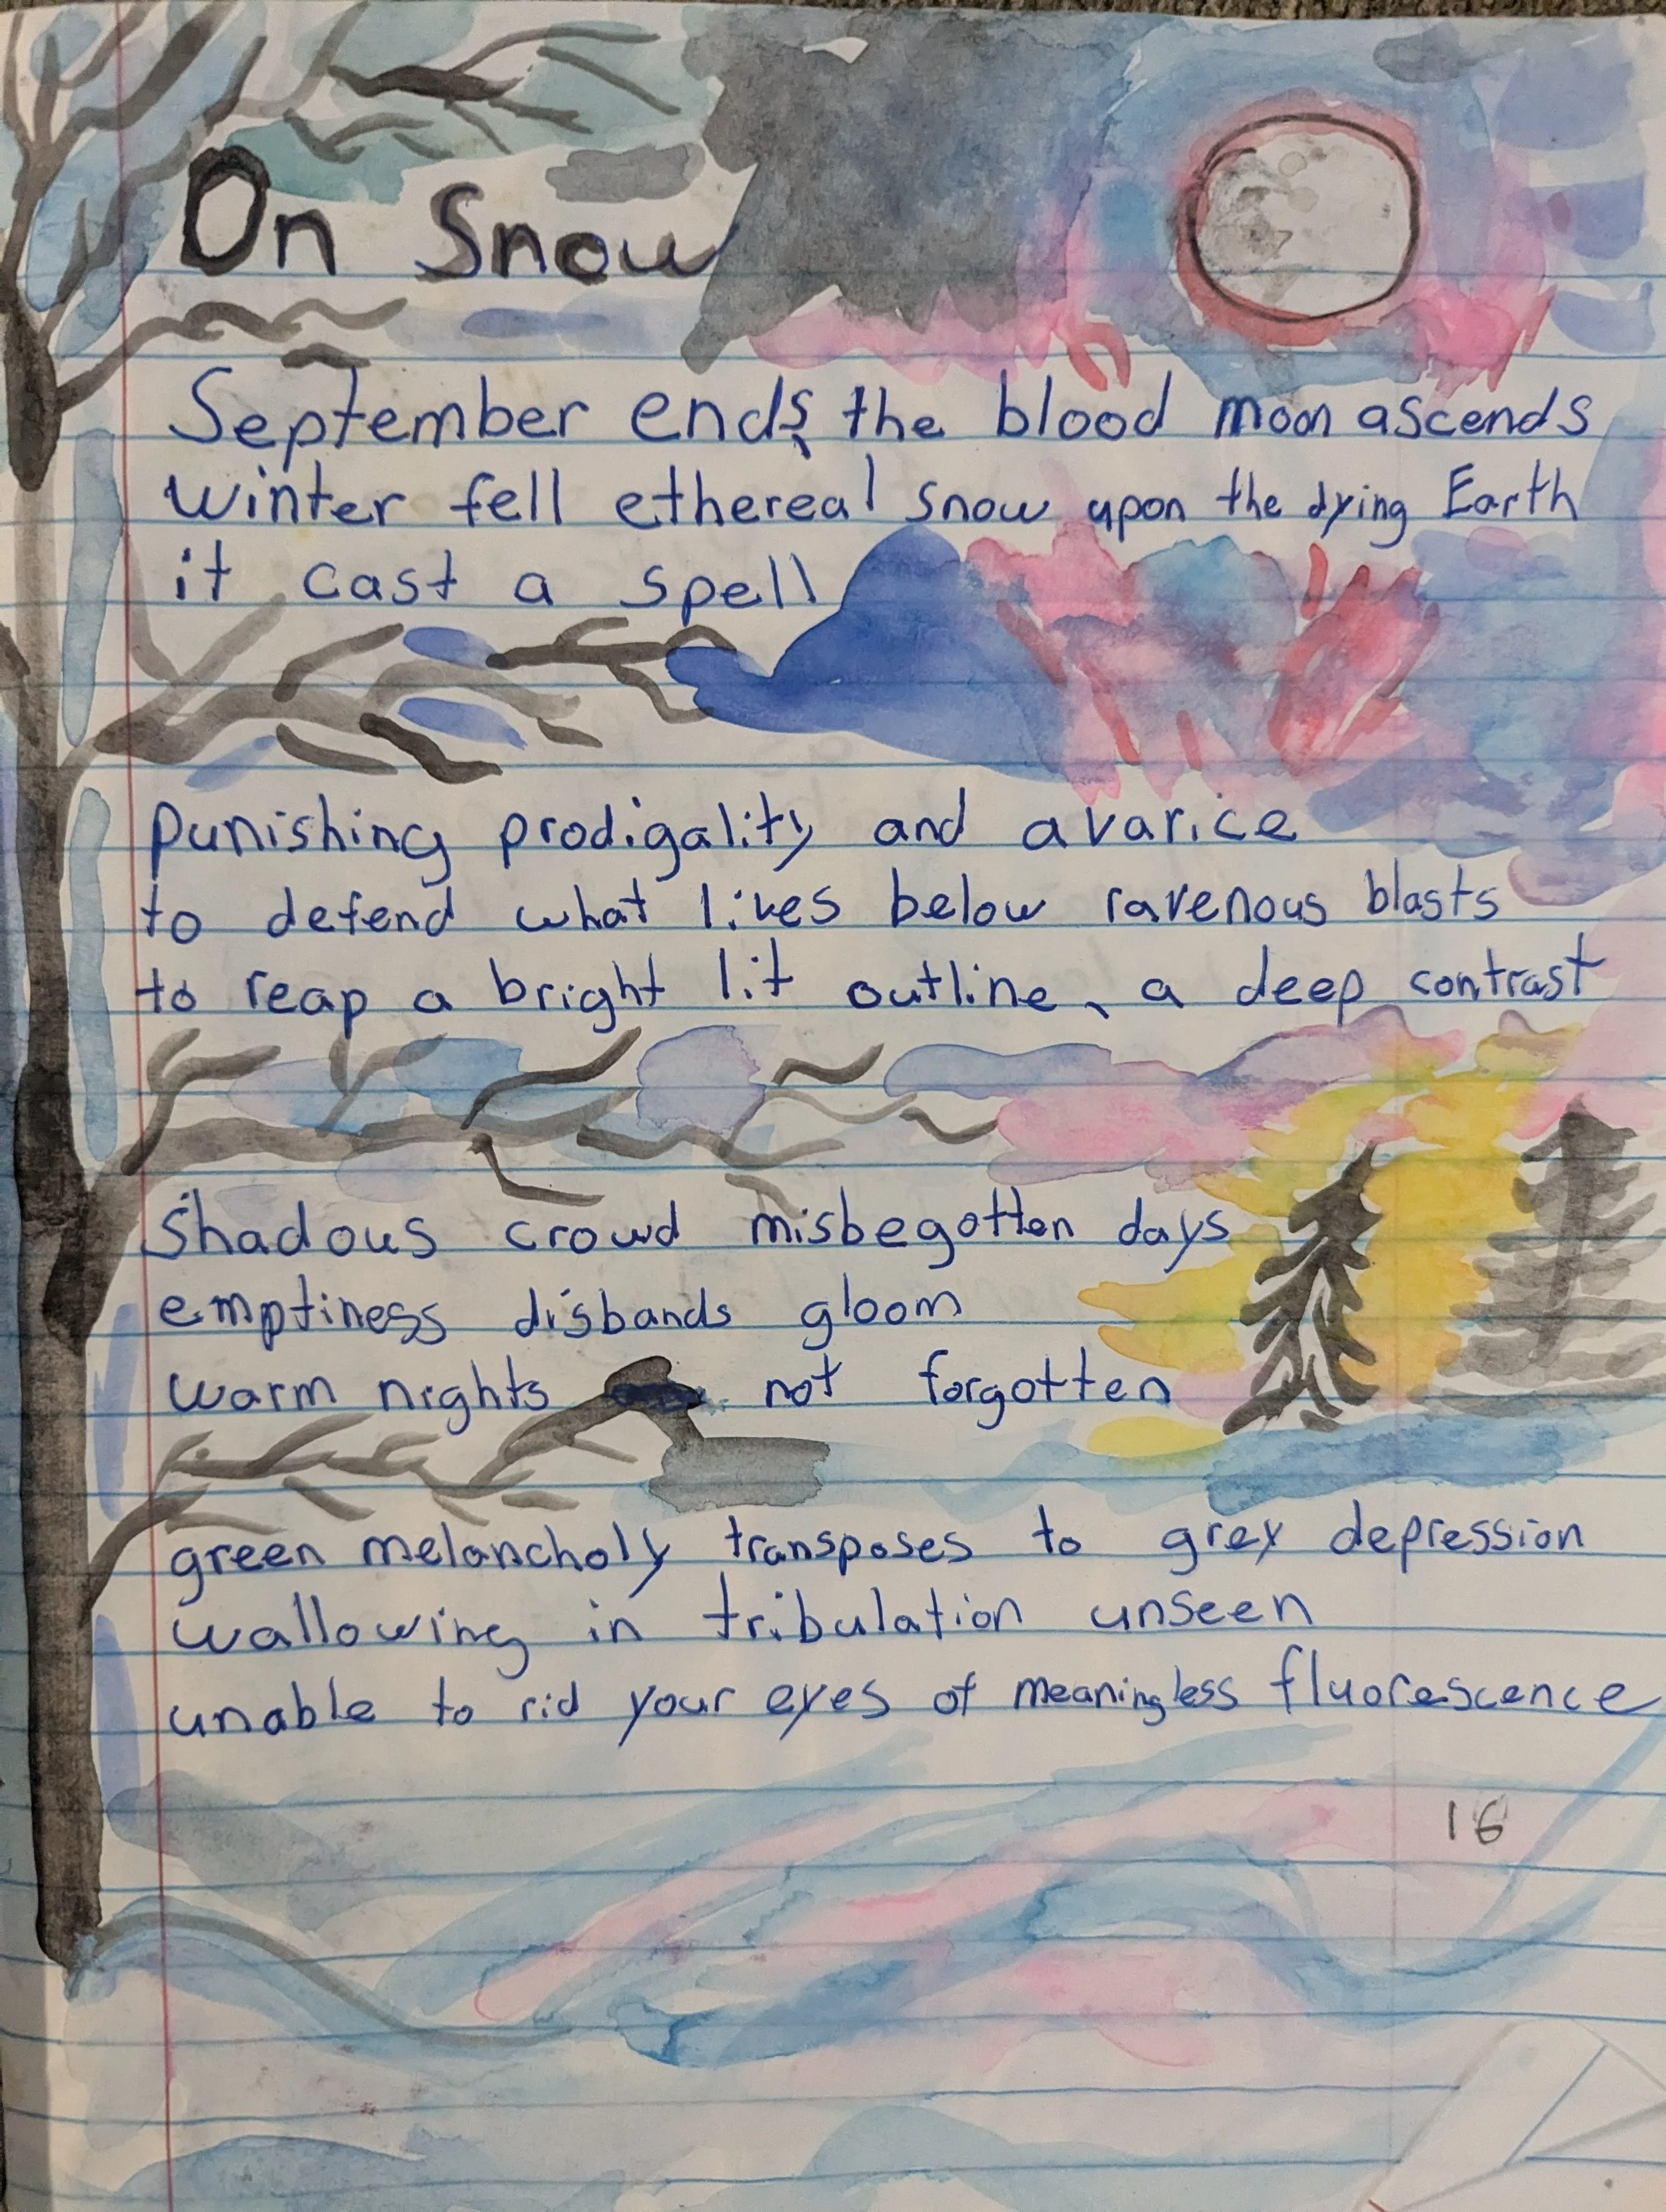 On Snow
September ends, the blood moon ascends
winter fell ethereal snow upon the dying Earth
it cast a spell
punishing prodigality and avarice
to defend what lives below ravenous blasts
to reap a bright lit outline, a deep contrast
Shadows crowd misbegotten days
emptiness disbands gloom
warm nights not forgotten
green melancholy transposes to grey depression
wallowing in tribulation unseen
unable to rid your eyes of meaningless fluorescence
16